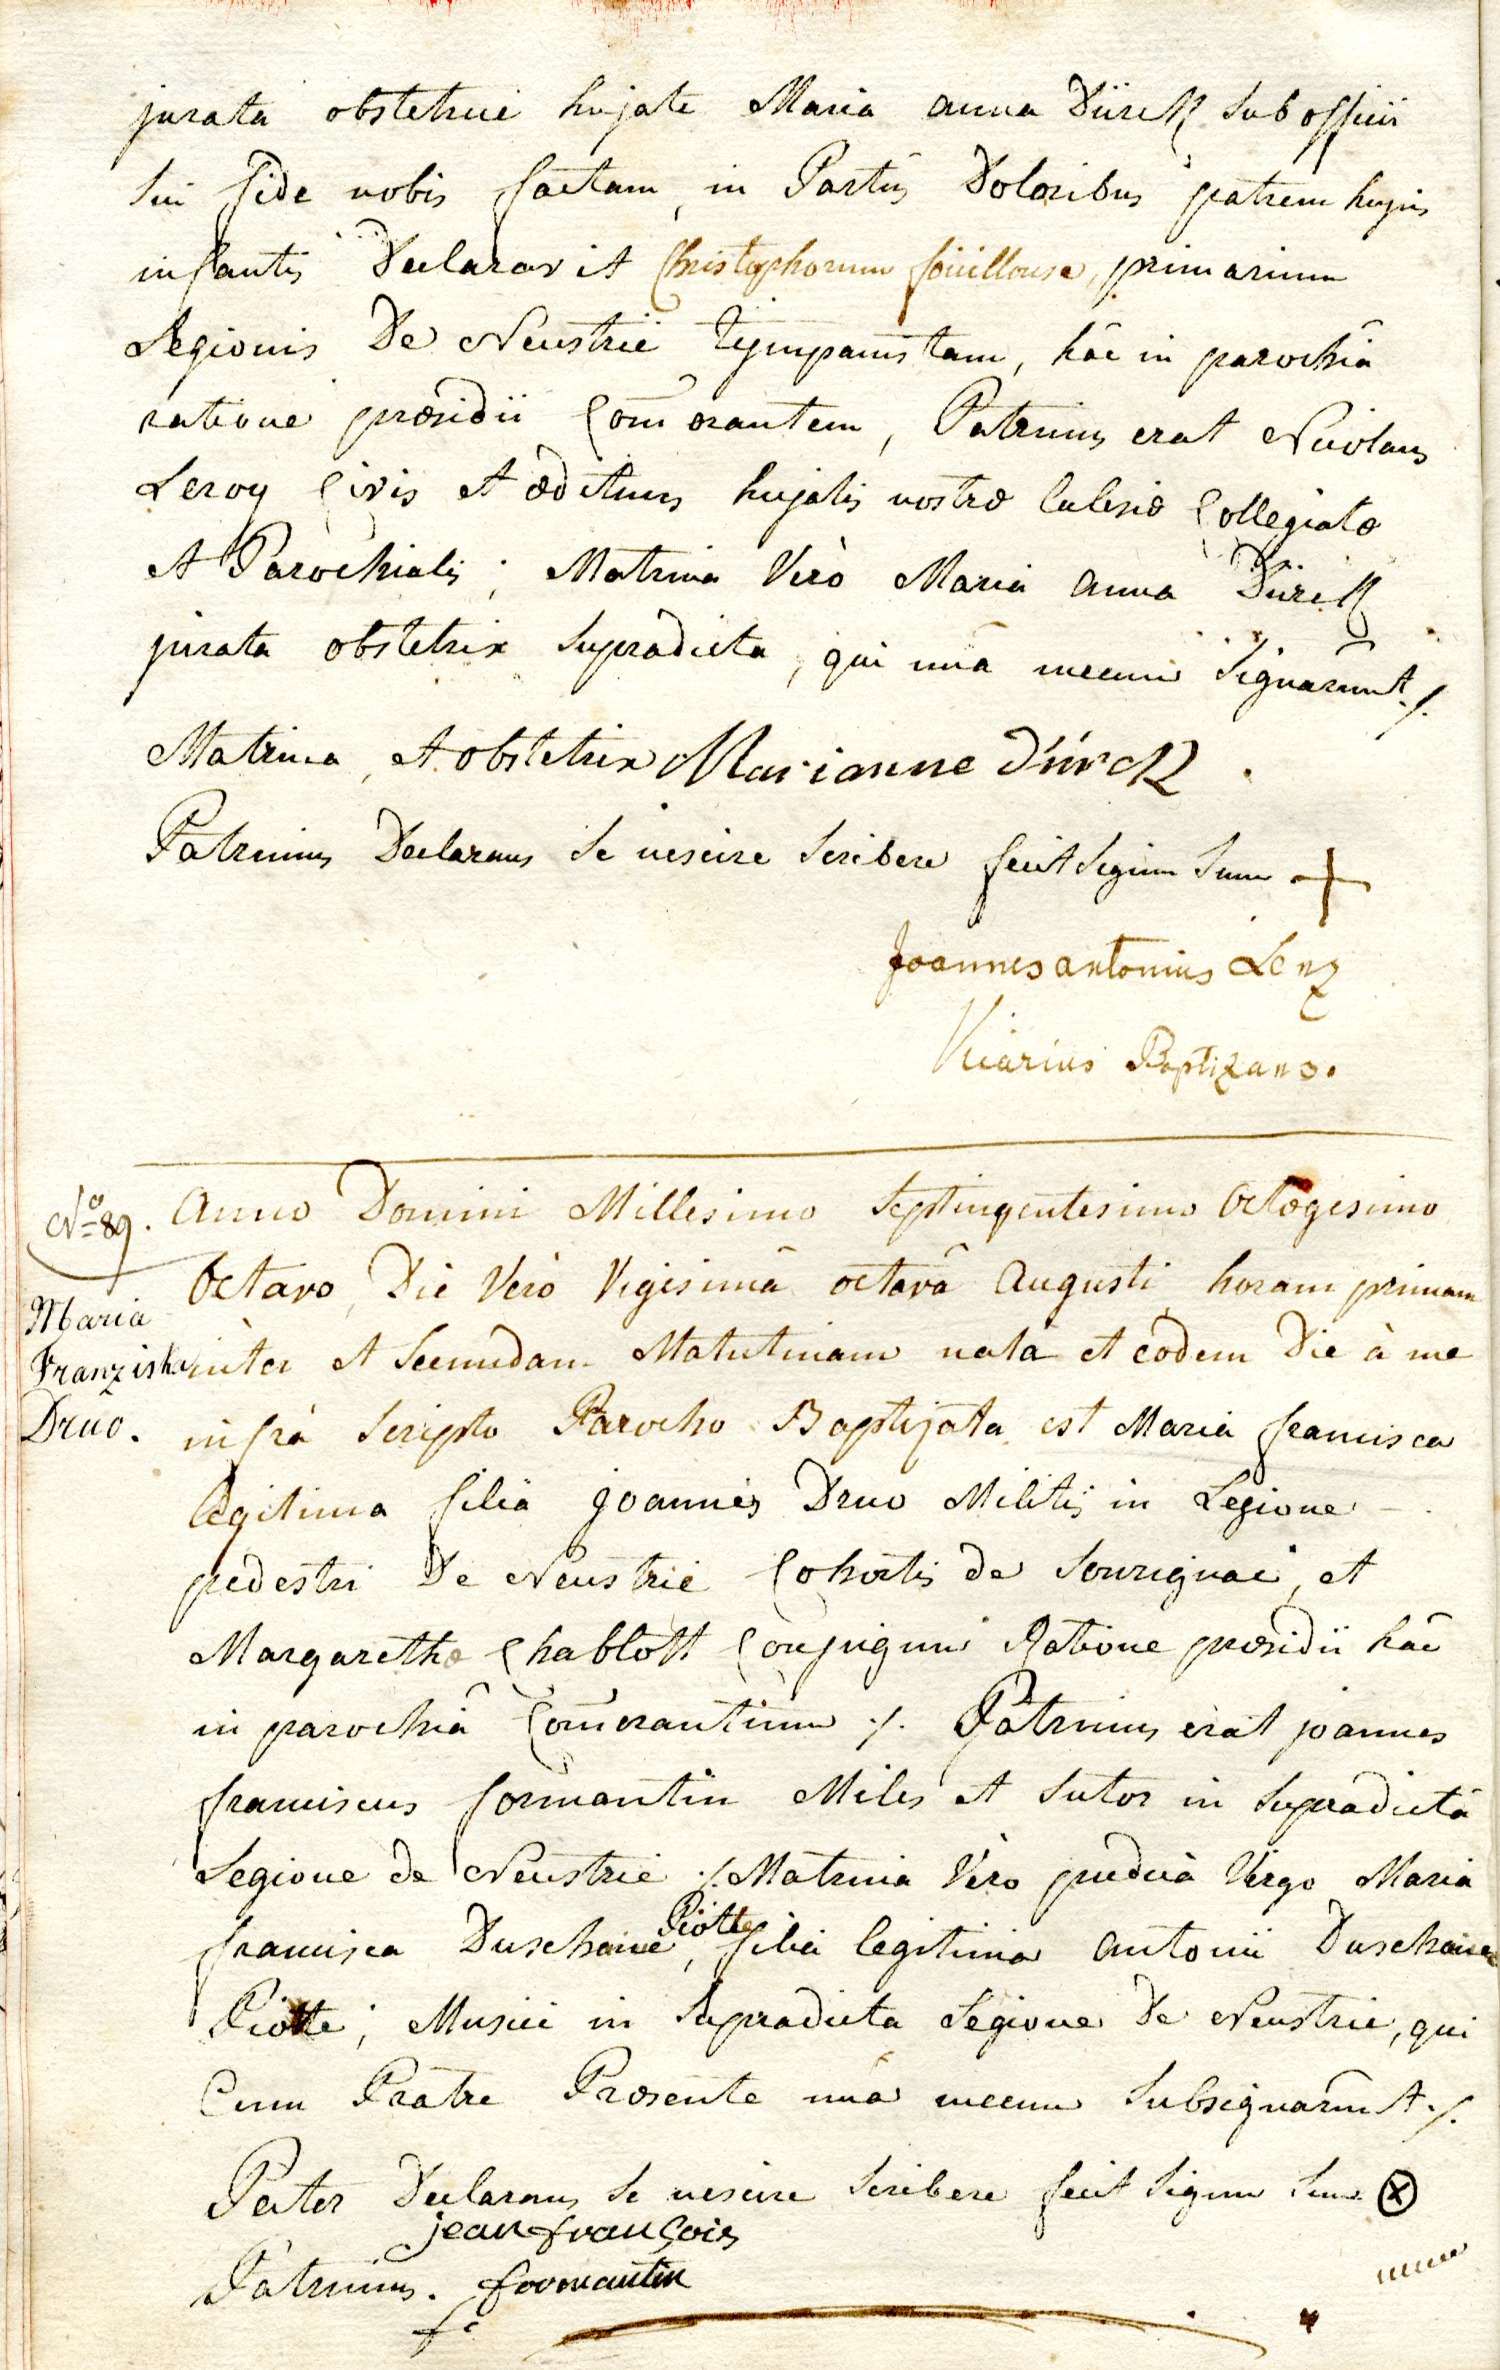 jurata obstetrice hujate Maria anna Dürck sub officii
sui fide nobis factam, in Partûs Doloribus patrem hujus
infantis Declaravit Christophorum foüillouse, primarium
Legionis De Neustrie tympanistam, hâc in parochiâ
ratione præsidii Com̃orantem, Patrinus erat Nicolaus
Leroy Civis et ædituus hujatis nostræ Eclesiæ Collegiatæ
et Parochialis; Matrina Verò Maria anna Dürck
jurata obstetrix supradicta, qui unâ mecum signarunt ./.
Matrina, et obstetrix Marianne dürck
Patrinus Declarans se nescire scribere fecit signum suum +
Joannes antonius Lenz
Vicarius Baptizans.
No 89. Anno Domini Millesimo septingentesimo Octogesimo
Octavo, Die Verò Vigesimâ octavâ Augusti, horam primam
Maria
Franziska inter et secundam Matutinam nata et eôdem Die à me
Druo. infrà scripto Parocho Baptizata est Maria francisca
legitima filia joannis Druo Militis in Legione
pedestri De Neustrie Cohortis de Sourignac, et
Margarethæ Chablott Conjugum Ratione præsidii hâc
in parochiâ Com̃orantium ./. Patrinus erat joannes
franciscus formantin Miles et sutor in supradictâ
Legione de Neustrie ./. Matrina Vèro pudica Virgo Maria
Piotte
francisca Duschaine, filia legitima antonii Duschaine
Piotte; Musici in supradicta Legione De Neustrie, qui
Cum Pratre Præsente unâ mecum subsignarunt ./.
Pater Declarans se nescire scribere fecit signum suum x
jean françois
Patrinus. formantin